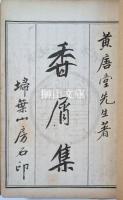 黃唐堂先生著
香屑集
掃葉山房石印